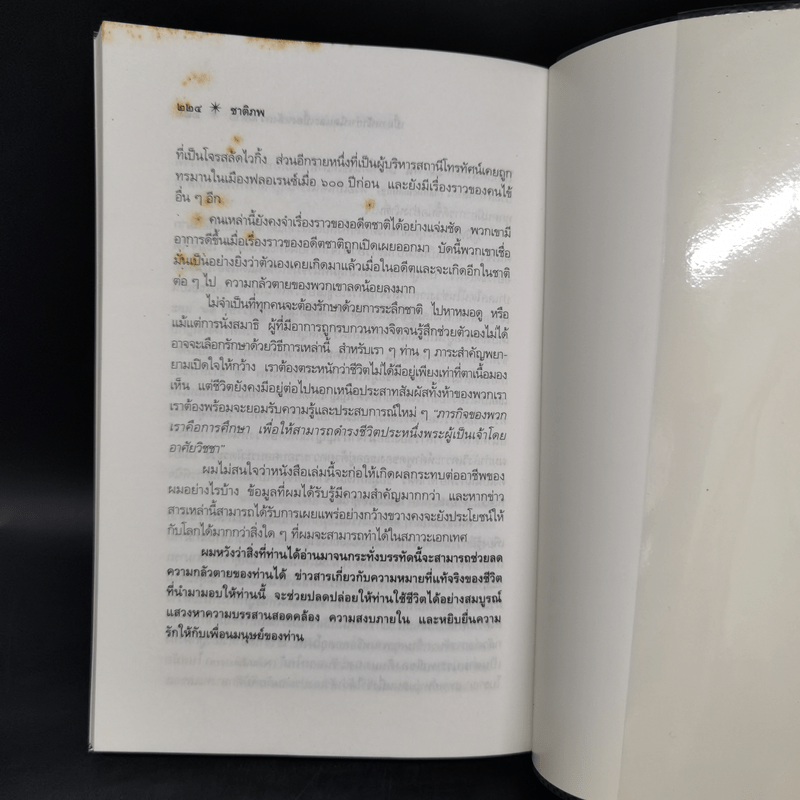 ๒๒๔ ✳ ชาติภพ
ที่เป็นโจรสลัดไวกิ้ง ส่วนอีกรายหนึ่งที่เป็นผู้บริหารสถานีโทรทัศน์เคยถูก
ทรมานในเมืองฟลอเรนซ์เมื่อ ๖๐๐ ปีก่อน และยังมีเรื่องราวของคนไข้
อื่น ๆ อีก
คนเหล่านี้ยังคงจำเรื่องราวของอดีตชาติได้อย่างแจ่มชัด พวกเขามี
อาการดีขึ้นเมื่อเรื่องราวของอดีตชาติถูกเปิดเผยออกมา บัดนี้พวกเขาเชื่อ
มั่นเป็นอย่างยิ่งว่าตัวเองเคยเกิดมาแล้วเมื่อในอดีตและจะเกิดอีกในชาติ
ต่อ ๆ ไป ความกลัวตายของพวกเขาลดน้อยลงมาก
ไม่จำเป็นที่ทุกคนจะต้องรักษาด้วยการระลึกชาติ ไปหาหมอดู หรือ
แม้แต่การนั่งสมาธิ ผู้ที่มีอาการถูกรบกวนทางจิตจนรู้สึกช่วยตัวเองไม่ได้
อาจจะเลือกรักษาด้วยวิธีการเหล่านี้ สำหรับเรา ๆ ท่าน ๆ ภาระสำคัญพยา-
ยามเปิดใจให้กว้าง เราต้องตระหนักว่าชีวิตไม่ได้มีอยู่เพียงเท่าที่ตาเนื้อมอง
เห็น แต่ชีวิตยังคงมีอยู่ต่อไปนอกเหนือประสาทสัมผัสทั้งห้าของพวกเรา
เราต้องพร้อมจะยอมรับความรู้และประสบการณ์ใหม่ ๆ "ภารกิจของพวก
เราคือการศึกษา เพื่อให้สามารถดำรงชีวิตประหนึ่งพระผู้เป็นเจ้าโดย
อาศัยวิชชา"
ผมไม่สนใจว่าหนังสือเล่มนี้จะก่อให้เกิดผลกระทบต่ออาชีพของ
ผมอย่างไรบ้าง ข้อมูลที่ผมได้รับรู้มีความสำคัญมากกว่า และหากข่าว
สารเหล่านี้สามารถได้รับการเผยแพร่อย่างกว้างขวางคงจะยังประโยชน์ให้
กับโลกได้มากกว่าสิ่งใด ๆ ที่ผมจะสามารถทำได้ในสภาวะเอกเทศ
ผมหวังว่าสิ่งที่ท่านได้อ่านมาจนกระทั่งบรรทัดนี้จะสามารถช่วยลด
ความกลัวตายของท่านได้ ข่าวสารเกี่ยวกับความหมายที่แท้จริงของชีวิต
ที่นำมามอบให้ท่านนี้ จะช่วยปลดปล่อยให้ท่านใช้ชีวิตได้อย่างสมบูรณ์
แสวงหาความบรรสานสอดคล้อง ความสงบภายใน และหยิบยื่นความ
รักให้กับเพื่อนมนุษย์ของท่าน